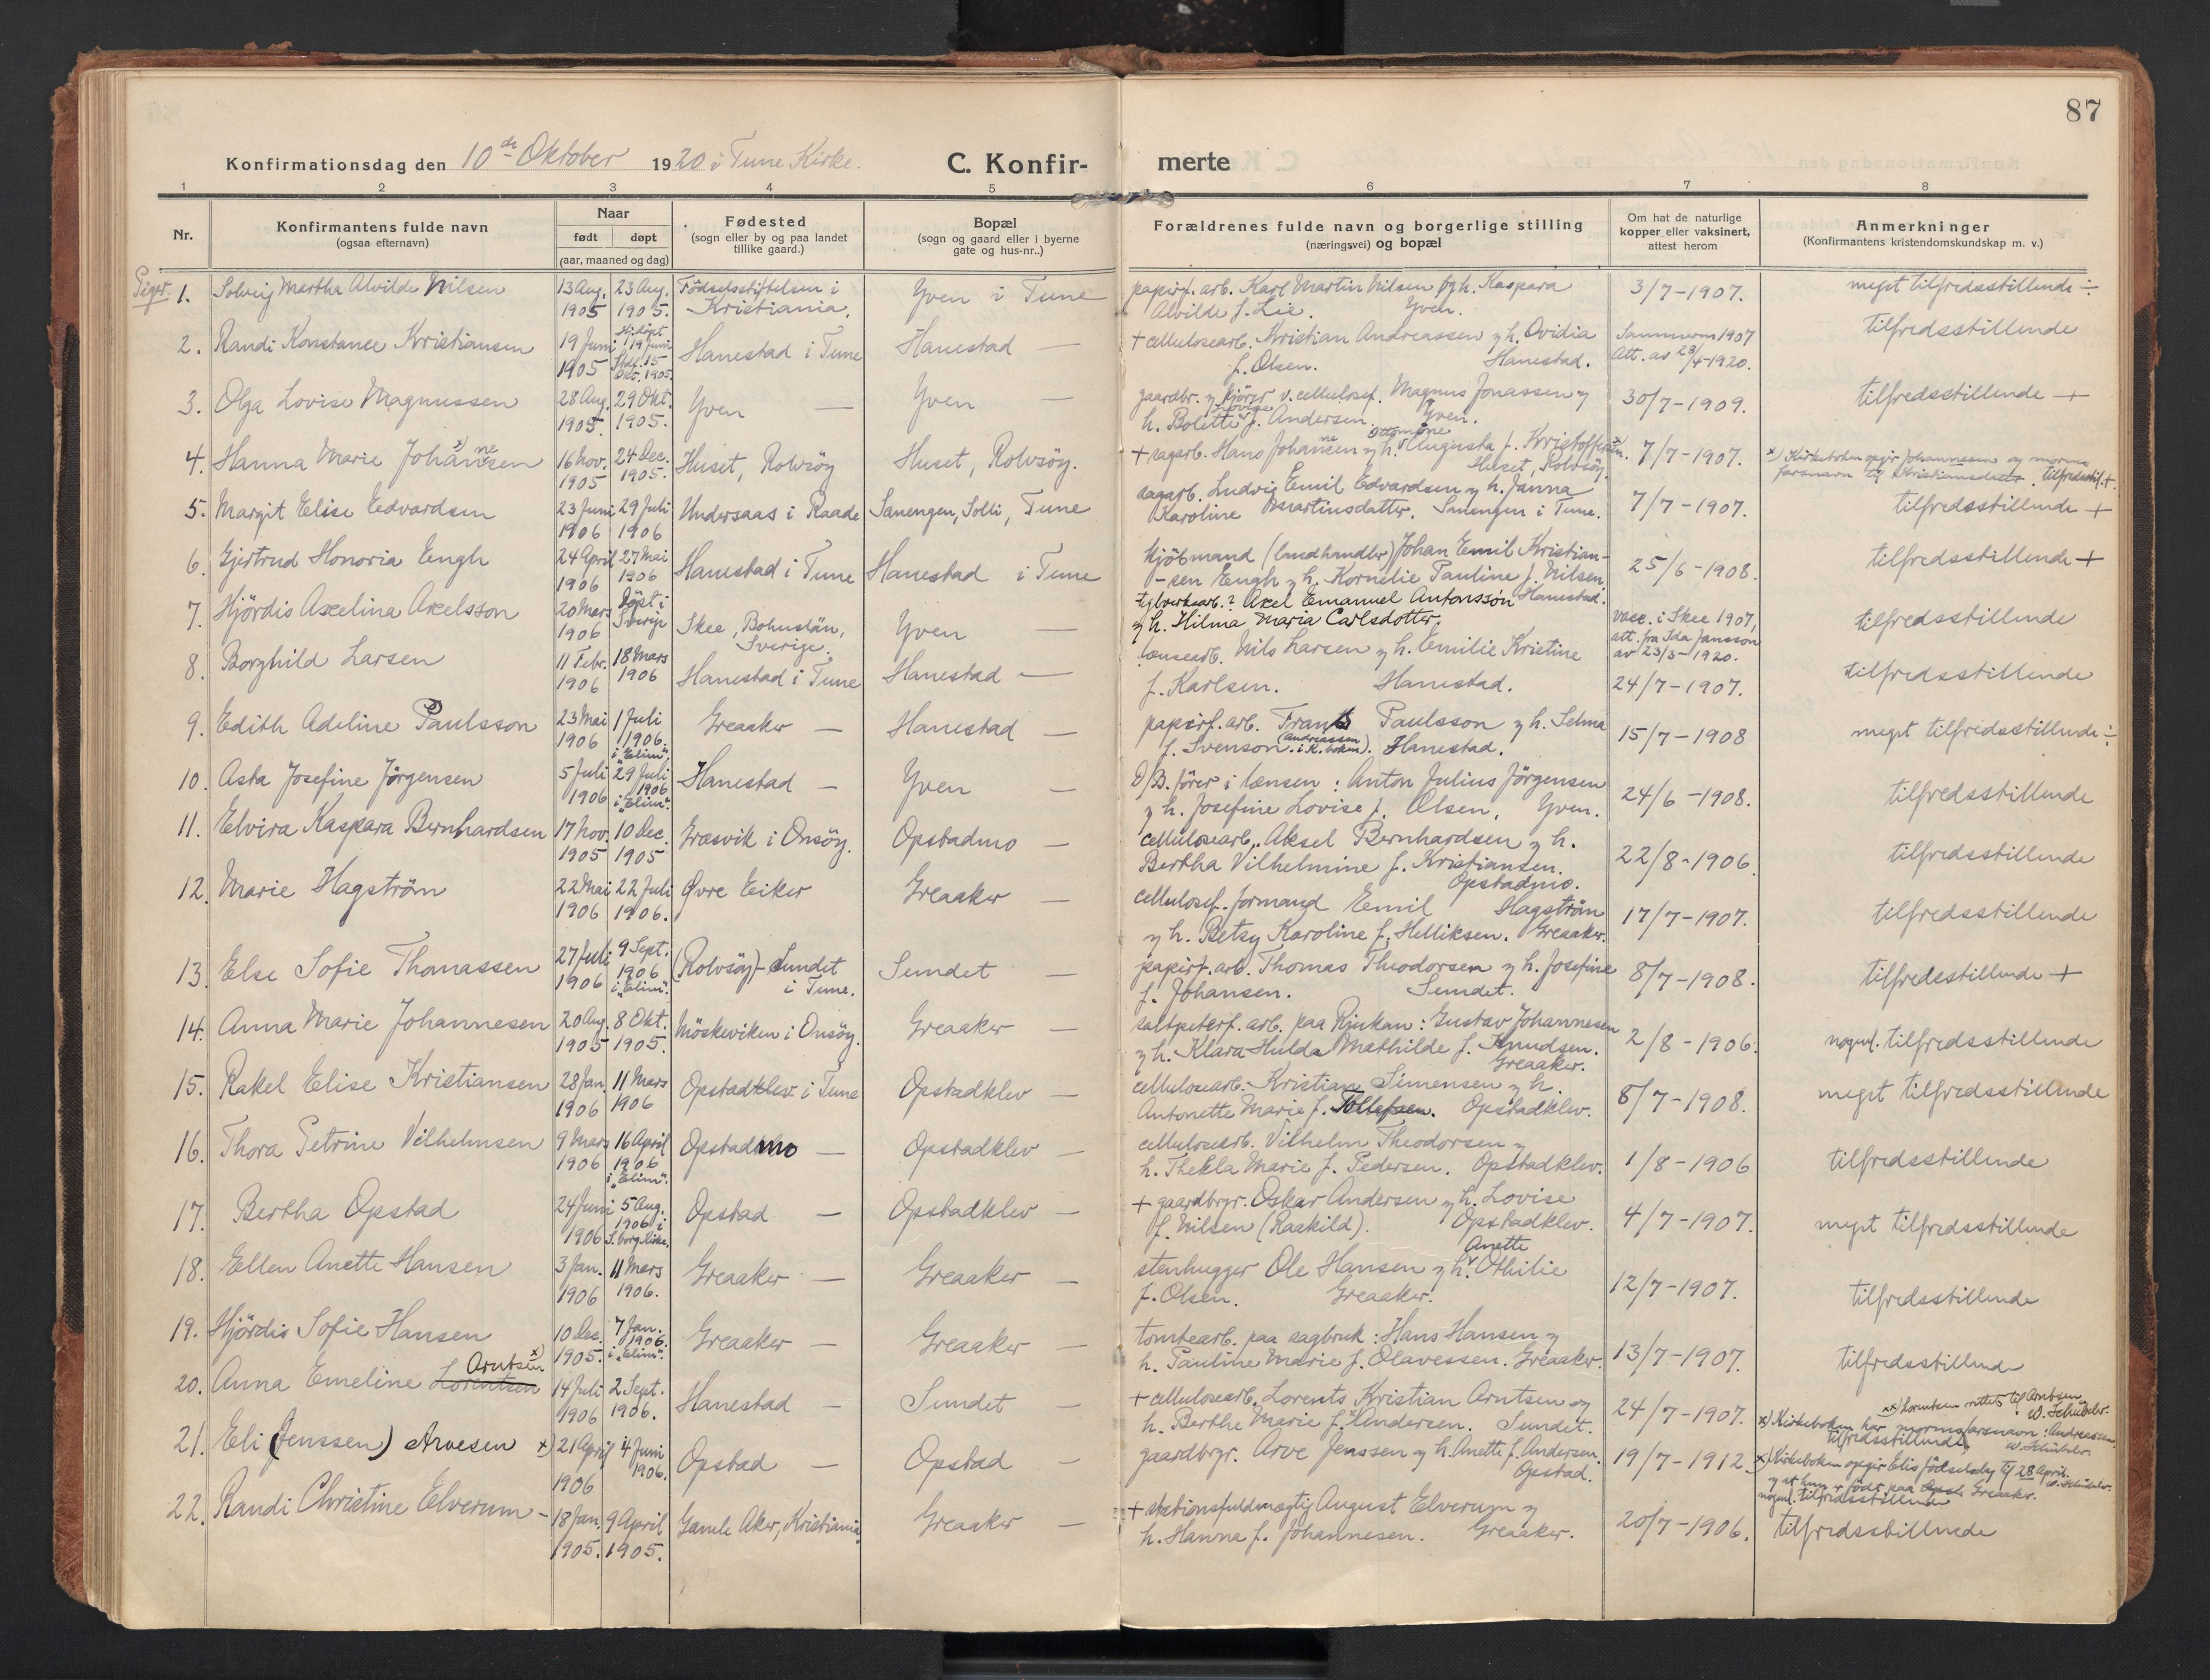 87
Konfirmationsdag den 10de Oktober 1920 i Tune Kirke. C. Konfir- merte
1 2 3 4 5 6 7 8
Nr. Konfirmantens fulde navn (ogsaa efternavn) Naar født døpt (aar, maaned og dag) Fødested (sogn eller by og paa landet tillike gaard.) Bopæl (sogn og gaard eller i byerne gate og hus-nr..) Forældrenes fulde navn og borgerlige stilling (næringsvei) og bopæl Om hat de naturlige kopper eller vaksinert, attest herom Anmerkninger (Konfirmantens kristendomskundskap m. v.)
Piger.
1. Solveig Martha Alvilde Nilsen 13 Aug. 1905 23 Aug. 1905. Fødselsstiftelsen i Kristiania. Yven i Tune papirf. arb. Karl Martin Nilsen og h. Kaspara Alvilde f. Lie. Yven. 3/7-1907. meget tilfredsstillende ÷
2. Randi Konstanse Kristiansen 19 Juni 1905 Hj.døpt 19 Juni Stad. 15 Okt. 1905. Hanestad i Tune Hanestad — + cellulosearb. Kristian Andreassen og h. Ovidia f. Olsen. Hanestad. Sommeren 1907 Att. av 28/4-1920. tilfredsstillende
3. Olga Lovise Magnussen 28 Aug. 1905. 29 Okt. 1905. Yven — Yven — gaardbr. og kjører v. cellulosef. Magnus Jonassen og h. Bolette Lovise f. Andersen. Yven. 30/7-1909. tilfredsstillende +
4. Hanna Marie Johansen x) ne 16 Nov. 1905 24 Dec. 1905. Huset, Rolvsøy Huset, Rolvsøy. + sagarb. Hans Johansen ne og h. Ottomine Augusta f. Kristoffersen. x) Huset, Rolvsøy. 7/7-1907. x) Kirkeboken opgir Johannesen og morens farsnavn til Kristiansdatter. tilfredsstil. +
5. Margit Elise Edvardsen 23 Juni 1906 29 Juli 1906 Undersaas i Raade Sanengen, Solli, Tune sagarb. Ludvig Emil Edvardsen og h. Janna Karoline Martinsdatter. Sanengen i Tune. 7/7-1907. tilfredsstillende +
6. Gjertrud Honoria Engh 24 April 1906 27 Mai 1906 Hanestad i Tune Hanestad i Tune kjøbmand (landhandler) Johan Emil Kristian- -sen Engh og h. Kornelie Pauline f. Nilsen. Hanestad. 25/6-1908. tilfredsstillende +
7. Hjördis Axelina Axelsson 20 Mars 1906 Døpt i Sverige Skee, Bohuslän, Sverige. Yven — teglverksarb.? Axel Emanuel Antonsson og h. Hilma Maria Carlsdotter. vacc. i Skee 1907, att. fra Ida Jansson av 23/3-1920. tilfredsstillende
8. Borghild Larsen 11 Febr. 1906 18 Mars 1906 Hanestad i Tune Hanestad — lensearb. Nils Larsen og h. Emilie Kristine f. Karlsen. Hanestad. 24/7-1907. tilfredsstillende
9. Edith Adeline Paulsson 23 Mai 1906 1 Juli 1906. i "Elim". Greaaker — Hanestad — papirf. arb. Frants Paulsson og h. Selma f. Svenson. (Andreassen i K. boken). Hanestad. 15/7-1908 meget tilfredsstillende ÷
10. Asta Josefine Jørgensen 5 Juli 1906 29 Juli 1906 i "Elim". Hanestad — Yven — D/B. fører i lensen: Anton Julius Jørgensen og h. Josefine Lovise f. Olsen, Yven. 24/6-1908. tilfredsstillende
11. Elvira Kaspara Bernhardsen 17 Nov. 1905 10 Dec. 1905 Græsvik i Onsøy. Opstadmo — cellulosearb. Aksel Bernhardsen og h. Bertha Vilhelmine f. Kristiansen. Opstadmo. 22/8-1906. tilfredsstillende
12. Marie Hagström 22 Mai 1906 22 Juli 1906. Øvre Eiker Greaaker — cellulosef. formand Emil Hagström og h. Betsy Karoline f. Helliksen. Greaaker. 17/7-1907. tilfredsstillende
13. Else Sofie Thomassen 27 Juli 1906 9 Sept. 1906 i "Elim". (Rolvsøy)-Sundet i Tune. Sundet — papirf. arb. Thomas Theodorsen og h. Josefine f. Johansen. Sundet. 8/7-1908. tilfredsstillende +
14. Anna Marie Johannesen 20 Aug. 1905 8 Okt. 1905. Møskeviken i Onsøy. Greaaker — saltpeterf. arb. paa Rjukan: Gustav Johannesen og h. Klara Hulda Mathilde f. Knudsen. Greaaker. 2/8-1906. nogenl. tilfredsstillende
15. Rakel Elise Kristiansen 28 Jan. 1906 11 Mars 1906 Opstadklev i Tune Opstadklev — cellulosearb. Kristian Simensen og h. Antonette Marie f. Tollefsen. Opstadklev. 8/7-1908. meget tilfredsstillende
16. Thora Petrine Vilhelmsen 9 Mars 1906 16 April 1906 i "Elim". Opstadmo — Opstadklev — cellulosearb. Vilhelm Theodorsen og h. Thekla Marie f. Pedersen. Opstadklev. 1/8-1906 tilfredsstillende
17. Bertha Opstad 24 Juni 1906 5 Aug. 1906 i S.borg Kirke. Opstad — Opstadklev — + gaardbrgr. Oskar Andersen og h. Lovise f. Nilsen (Raakild). Opstadklev. 4/7-1907. meget tilfredsstillende
18. Ellen Anette Hansen 3 Jan. 1906 11 Mars 1906. Greaaker — Greaaker — stenhugger Ole Hansen og h. Anette Othilie f. Olsen. Greaaker. 12/7-1907. tilfredsstillende
19. Hjördis Sofie Hansen 10 Dec. 1905. 7 Jan. 1906. i "Elim". Greaaker — Greaaker — tomtearb. paa sagbruk: Hans Hansen og h. Pauline Marie f. Olavessen. Greaaker. 13/7-1907. tilfredsstillend
20. Anna Emeline Lorentsen Arntsen x) 14 Juli 1906 2 Sept. 1906. Hanestad — Sundet — + cellulosearb. Lorents Kristian Arntsen og h. Berthe Marie f. x Andersen. Sundet. 24/7-1907. xx) Lorentsen rettet til Arntsen. W. Schübeler. x) Kirkeboken har morens farsnavn: Andreassen. tilfredsstillende. W. Schübeler.
21. Eli (Jenssen) Arvesen x) 21 April 1906 4 Juni 1906. Opstad — Opstad — gaardbrgr. Arve Jenssen og h. Anette f. Andersen. Opstad. 19/7-1912. x) Kirkeboken opgir Elis fødselsdag til 28 April. og at hun er født paa Opst. Greaaker. W. Schübeler. nogenl. tilfredsstillende
22. Randi Christine Elverum - 18 Jan. 1905. 9 April 1905. Gamle Aker, Kristiania. Greaaker — + stationsfuldmægtig August Elverum og h. Hanna f. Johannesen. Greaaker. 20/7-1906. tilfredsstillende